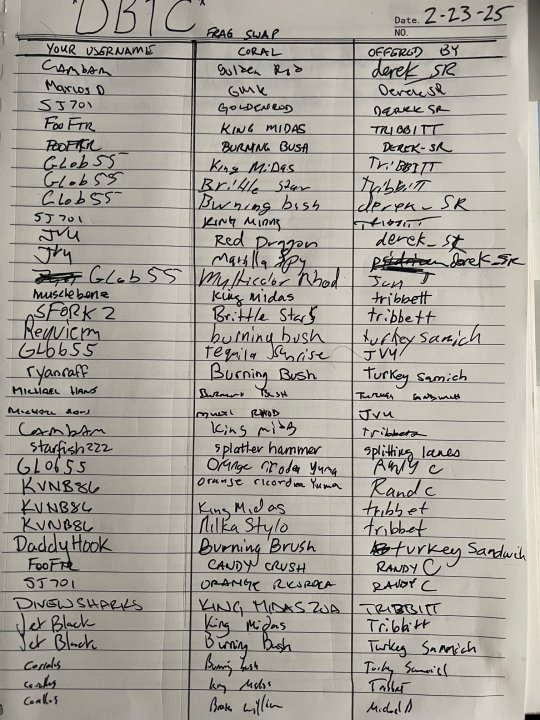 *DBTC*
FRAG SWAP
Date. 2-23-25
NO.
YOUR USERNAME CORAL OFFERED BY
CAMBAM Golden Rod derek_SR
Marcos D GMK DerekSR
SJ701 GOLDENROD DEREK SR
FOOFTR KING MIDAS TRIBBITT
FOOFTR BURNING BUSH DEREK-SR
Glob55 King Midas TribbITT
Glob55 Brittle Star Tribbitt
Glob55 Burning bish derek_SR
SJ701 KING MIDAS
JVU Red Dragon derek_sr
JVU derek_SR
Glob55 Mylticolor Rhod
musclebone King midas tribbett
SFORK2 Brittle Stars tribbett
Requiem burning bush turkey samich
Glob55 Tequila Sunrise JVU
ryanraff Burning Bush Turkey Samich
MICHAEL HANS BURNING BUSH
RHOD JVU
CAMBAM King midas
starfish222 splatter hammer splitting lanes
Glob55 Orange ricordea Yuma Randy C
KVNB86 orange ricordea Yuma Rand C
KVNB86 King Midas tribbet
KVNB86 Milka Stylo tribbet
DaddyHook Burning Brush turkey Sandwich
FOOFTR CANDY CRUSH RANDY C
SJ701 ORANGE RANDY C
DNEWSHARKS KING MIDAS ZOA TRIBBITT
Jet Black King Midas Tribbitt
Jet Black Burning Bush Turkey Sammich
Corallus Burning bush Turkey
Corallus King Midas
Corallus Michael D